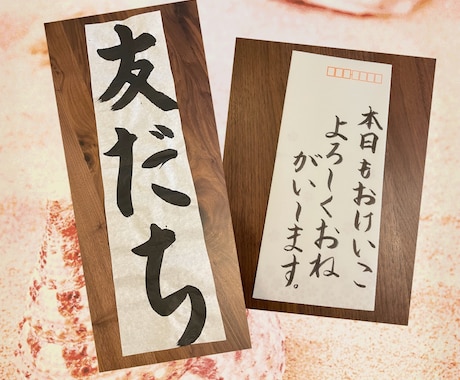 友だち
本日もおけいこ
よろしくおね
がいします。